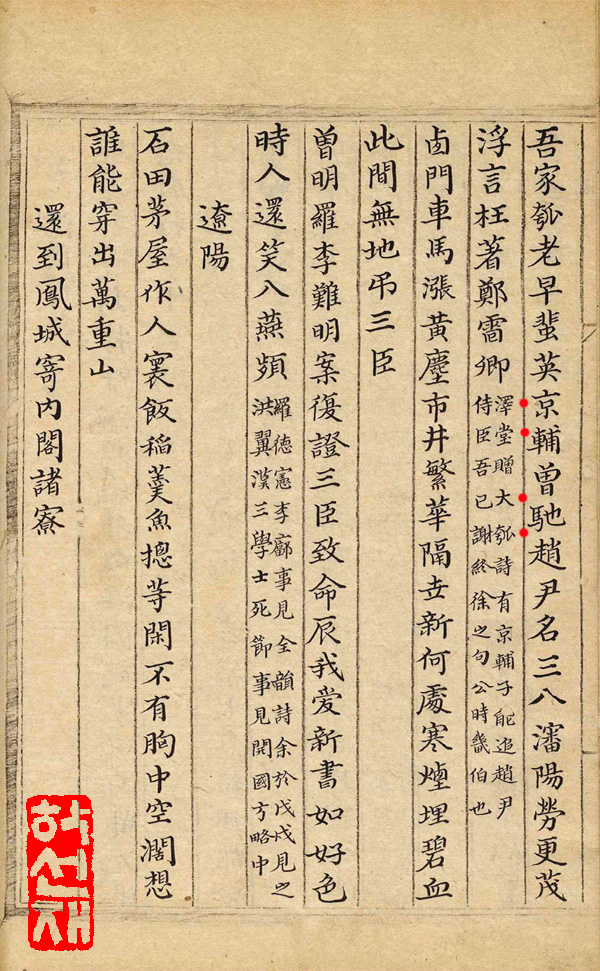 吾家瓠老早蜚英京輔曾馳趙尹名三入瀋陽勞更茂
浮言枉著鄭雷卿
澤堂贈大瓠詩有京輔子能追趙尹
侍臣吾已謝終徐之句公時畿伯也
鹵門車馬漲黃塵市井繁華隔世新何處寒煙埋碧血
此間無地弔三臣
曾明羅李難明案復證三臣致命辰我愛新書如好色
時人還笑入燕頻
羅德憲李廓事見全韻詩余於戊戌見之
洪翼漢三學士死節事見開國方略中
遼陽
石田茅屋作人寰飯稻羹魚摠等閑不有胸中空濶想
誰能穿出萬重山
還到鳳城寄內閣諸寮
하선재